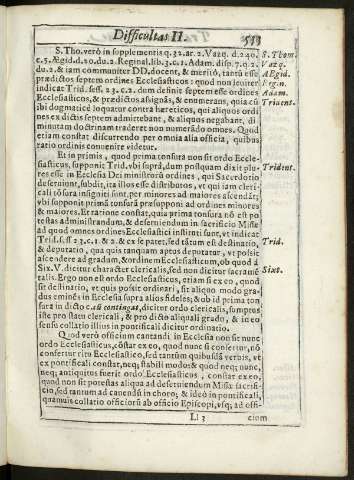 Difficultas II. 533
S. Tho. verò in supplementis q. 32. ar. 2. Vazq. d. 240.
c. 5. Ægid. d. 20. du. 2. Reginal. lib. 30. c. 1. Adam. disp. 7. q. 2.
du. 2. & iam communiter DD. docent, & meritò, tantũ esse
prædictos septem ordines Ecclesiasticos: quod non leuiter
indicat Trid. sess. 23. c. 2. dum definit septem esse ordines
Ecclesiasticos, & prædictos assignãs, & enumerans, quia cũ
ibi dogmaticè loquatur contra hæreticos, qui aliquos ordi
nes ex dictis septem admittebant, & aliquos negabant, di
minutam doctrinam traderet non numerãdo omnes. Quod
etiam constat discurrendo per omnia alia officia, quibus
ratio ordinis conuenire videtur.
Et in primis, quod prima tonsura non sit ordo Eccle-
siasticus, supponit Trid. vbi suprà, dum postquam dixit plu-
res esse in Ecclesia Dei ministrorũ ordines, qui Sacerdotio
deseruiunt, subdit, ita illos esse distributos, vt qui iam cleri-
cali tõsura insigniti sunt, per minores ad maiores ascendãt;
vbi supponit primã tonsurã præsupponi ad ordines minores
& maiores. Et ratione constat, quia prima tonsura nõ est po
testas administrandum, & deseruiendum in sacrificio Missæ
ad quod omnes ordines Ecclesiastici instituti sunt, vt indicat
Trid. s. ss 23. c. 1. & 2. & ex se patet, sed tãtum est destinatio,
& deputatio, qua quis tanquam aptus deputatur, vt possit
ascendere ad gradum, & ordinem Ecclesiasticum, ob quod à
Six. V. dicitur character clericalis, sed non dicitur sacrame
talis. Ergo non est ordo Ecclesiasticus, etiam si ex eo, quod
sit destinatio, vt quis possit ordinari, sit aliquo modo gra-
dus eminẽs in Ecclesia supra alios fideles; & ob id prima ton
sura in dicto c. cũ contingat, dicitur ordo clericalis, sumptus
iste pro statu clericali, & pro dicto aliquali gradu, & in eo
sensu collatio illius in pontificali dicitur ordinatio.
Quòd verò officium cantandi in Ecclesia non sit nunc
ordo Ecclesiasticus, cõstat ex eo, quod nunc si confertur, nõ
confertur ritu Ecclesiastico, sed tantùm quibusdã verbis, vt
ex pontificali constat, neq; stabili modo: & quod neq; nunc,
neq; antiquitus fuerit ordo Ecclesiasticus, constat ex eo,
quod non sit potestas aliqua ad deseruiendum Missæ sacrifi-
cio, sed tantum ad canendũ in choro; & ideò in pontificali,
quamuis collatio officiorũ ab officio Episcopi, vsq; ad offi-
Ll 3 cium
S. Thom.
Vazq.
AEgid.
Regin.
Adam.
Trident.
Trident.
Trid.
Sixt.